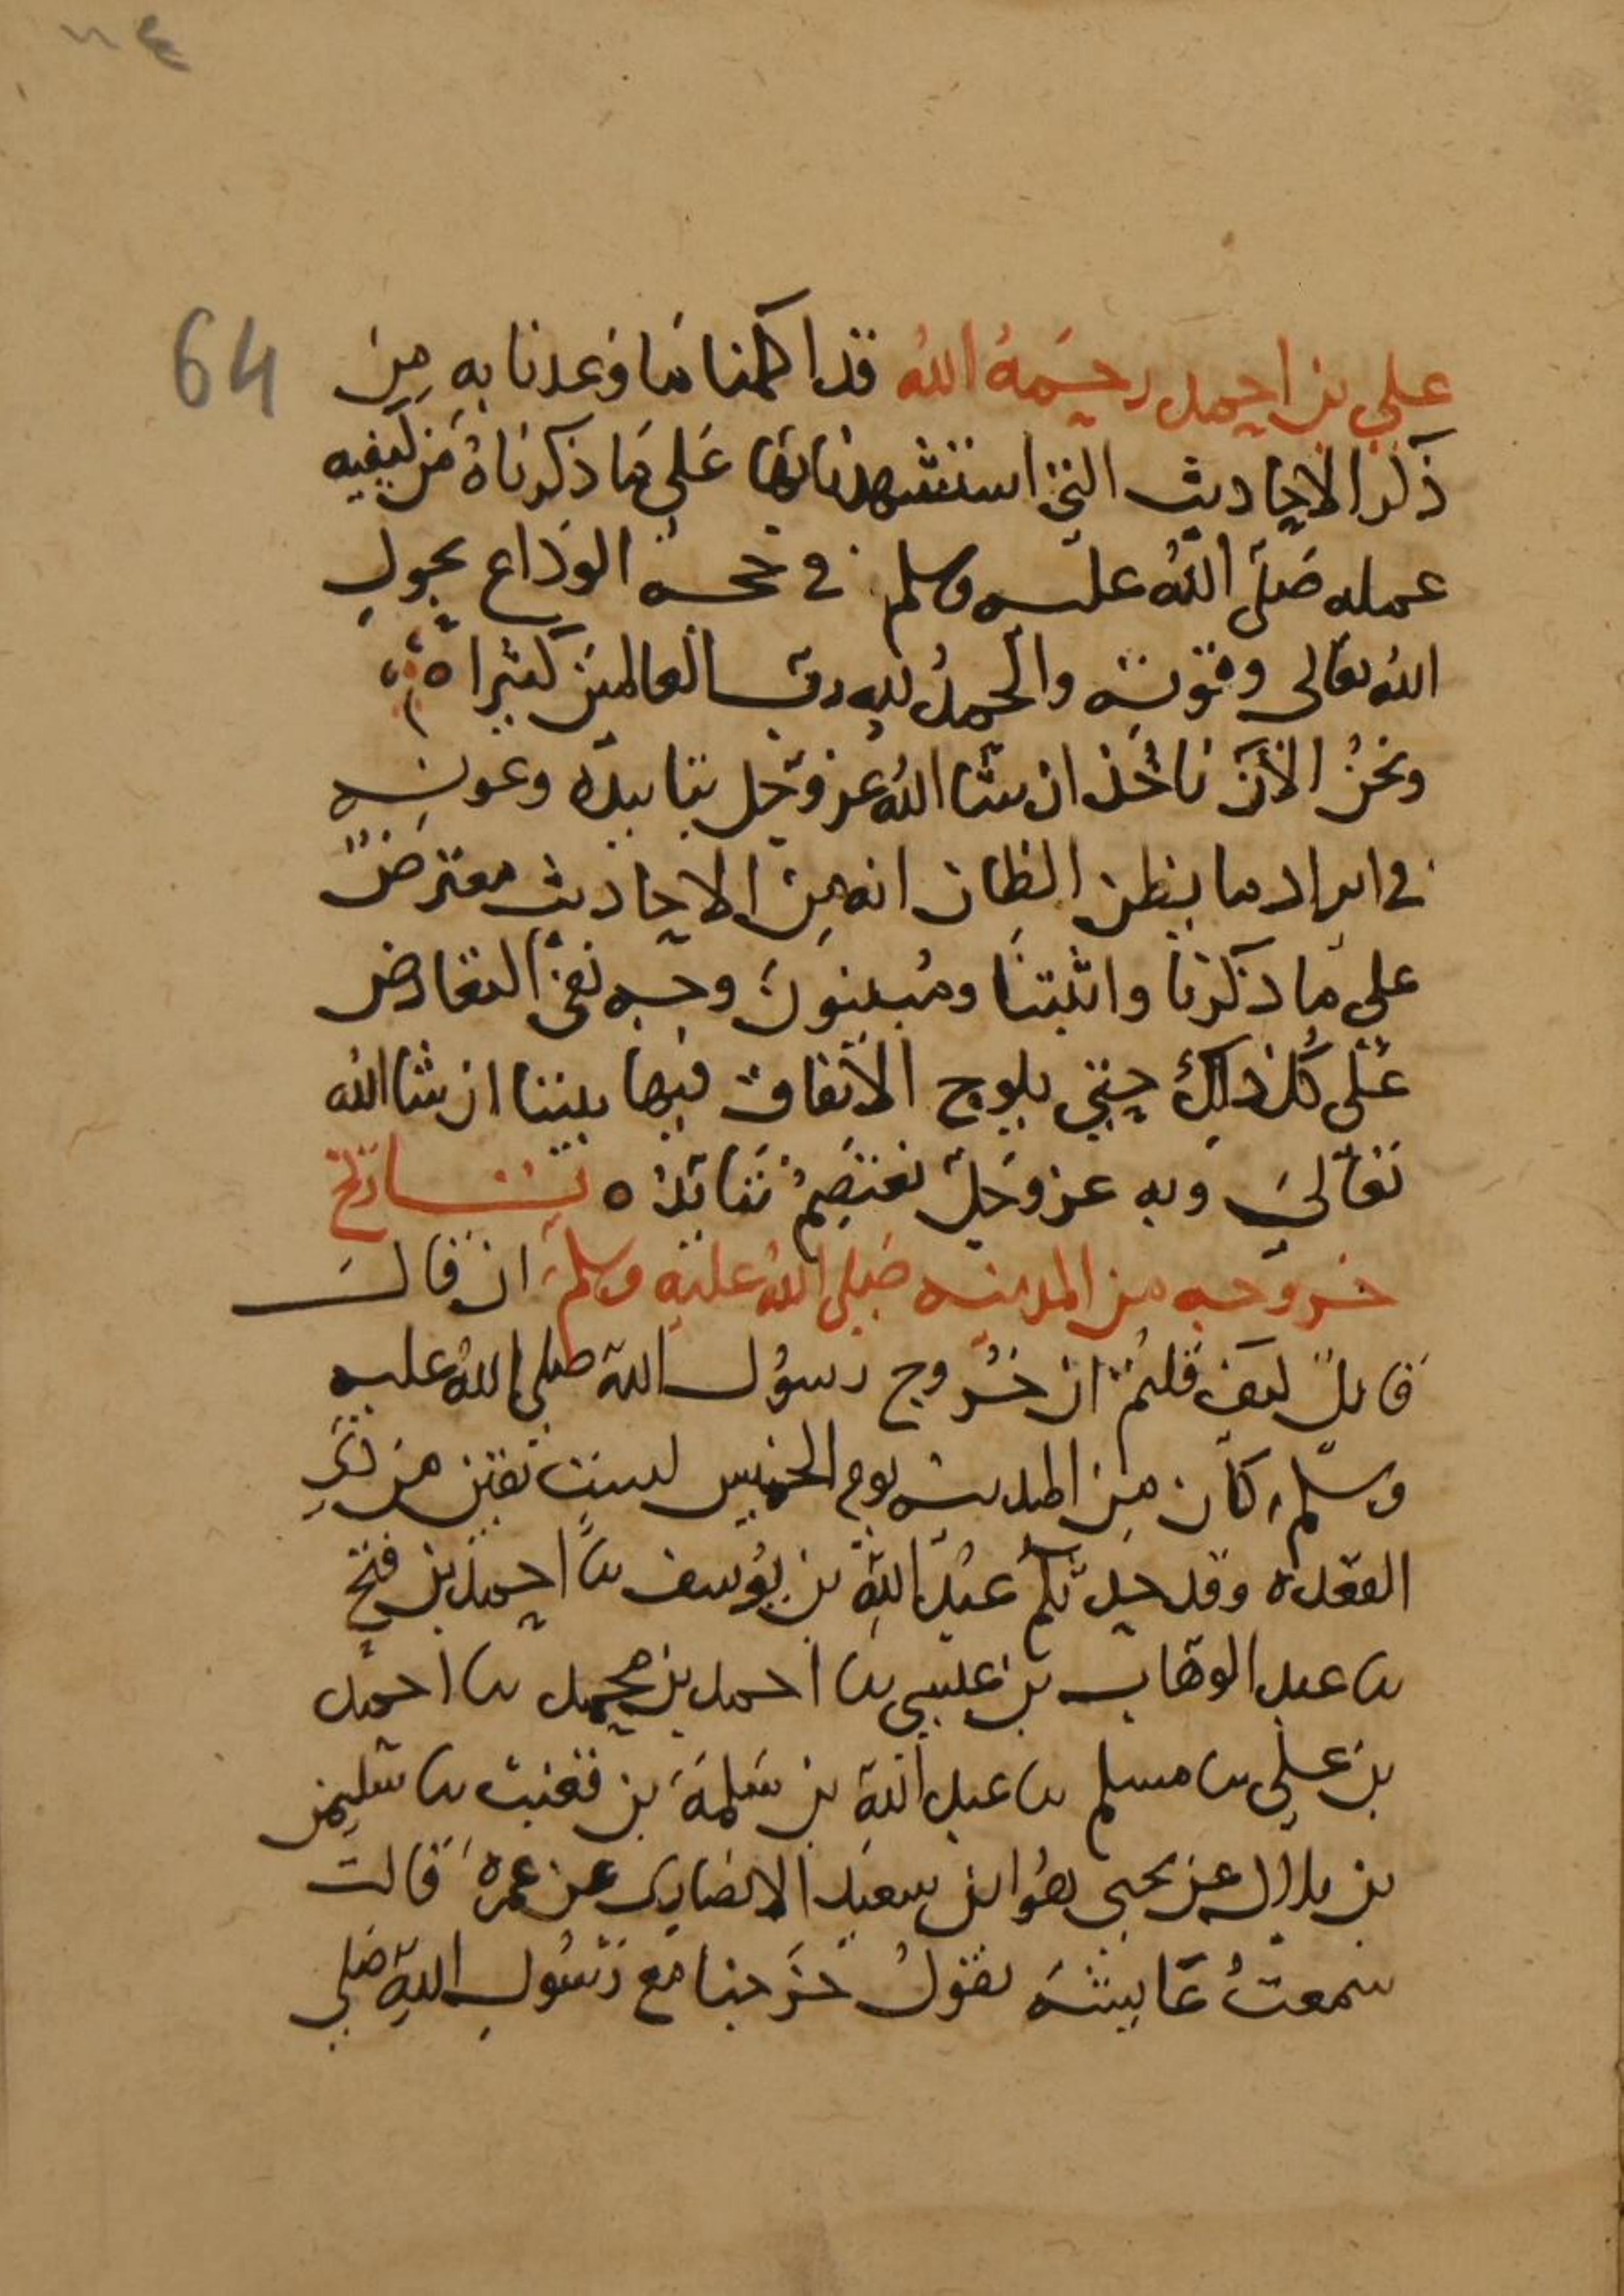 ٦٤
64
علي بن احمد رحمه الله قد اكملنا ما وعدنا به من
ذكر الاحاديث التي استشهدنا بها على ما ذكرناه من كيفيه
عمله صلى الله عليه وسلم في حجه الوداع بحول
الله تعالى وقوته والحمد لله رب العالمين كثيرا ه
ونحن الآن ناخذ ان شا الله عز وجل بتاييده وعونه
في ايراد ما يظن الظان انه من الاحاديث معترض
على ما ذكرنا واثبتنا ومبينون وجه نفي التعارض
على كل ذلك حتى يلوح الاتفاق فيها بيننا ان شا الله
تعالى وبه عز وجل نعتصم نتايد ه تاريخ
خروجه من المدينه صلى الله عليه وسلم ان قال
قايل كيف قلتم ان خروج رسول الله صلى الله عليه
وسلم كان من المدينه يوم الخميس لست بقين من ذي
القعده وقد حدثكم عبد الله بن يوسف نا احمد بن فتح
نا عبد الوهاب بن عيسى نا احمد بن محمد نا احمد
بن علي نا مسلم نا عبد الله بن سلمة بن قعنب نا سليمن
بن بلال عن يحيى هو ابن سعيد الانصاري عن عمرة قالت
سمعت عايشة تقول خرجنا مع رسول الله صلى